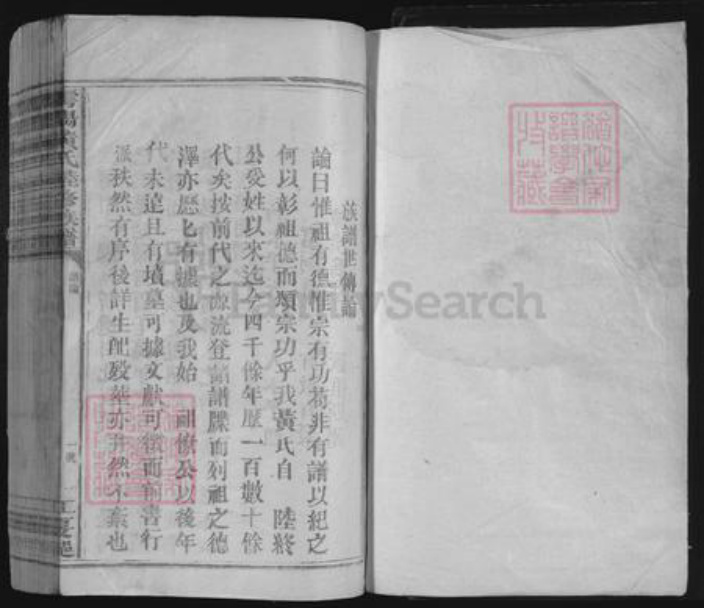 族譜世傳論
論曰惟祖有德惟宗有功苟非有譜以紀之
何以彰祖德而頌宗功乎我黃氏自 陸終
公受姓以來迄今四千餘年歷一百數十餘
代矣按前代之源流登舊譜牒而列祖之德
澤亦歷匕有據也及我始 祖 公以後年
代未遠且有墳墓可據文獻可徵而 書行
派秩然有序後詳生配歿塟亦井然不紊也
黃氏陸修族譜
一號
江夏堂
FamilySearch